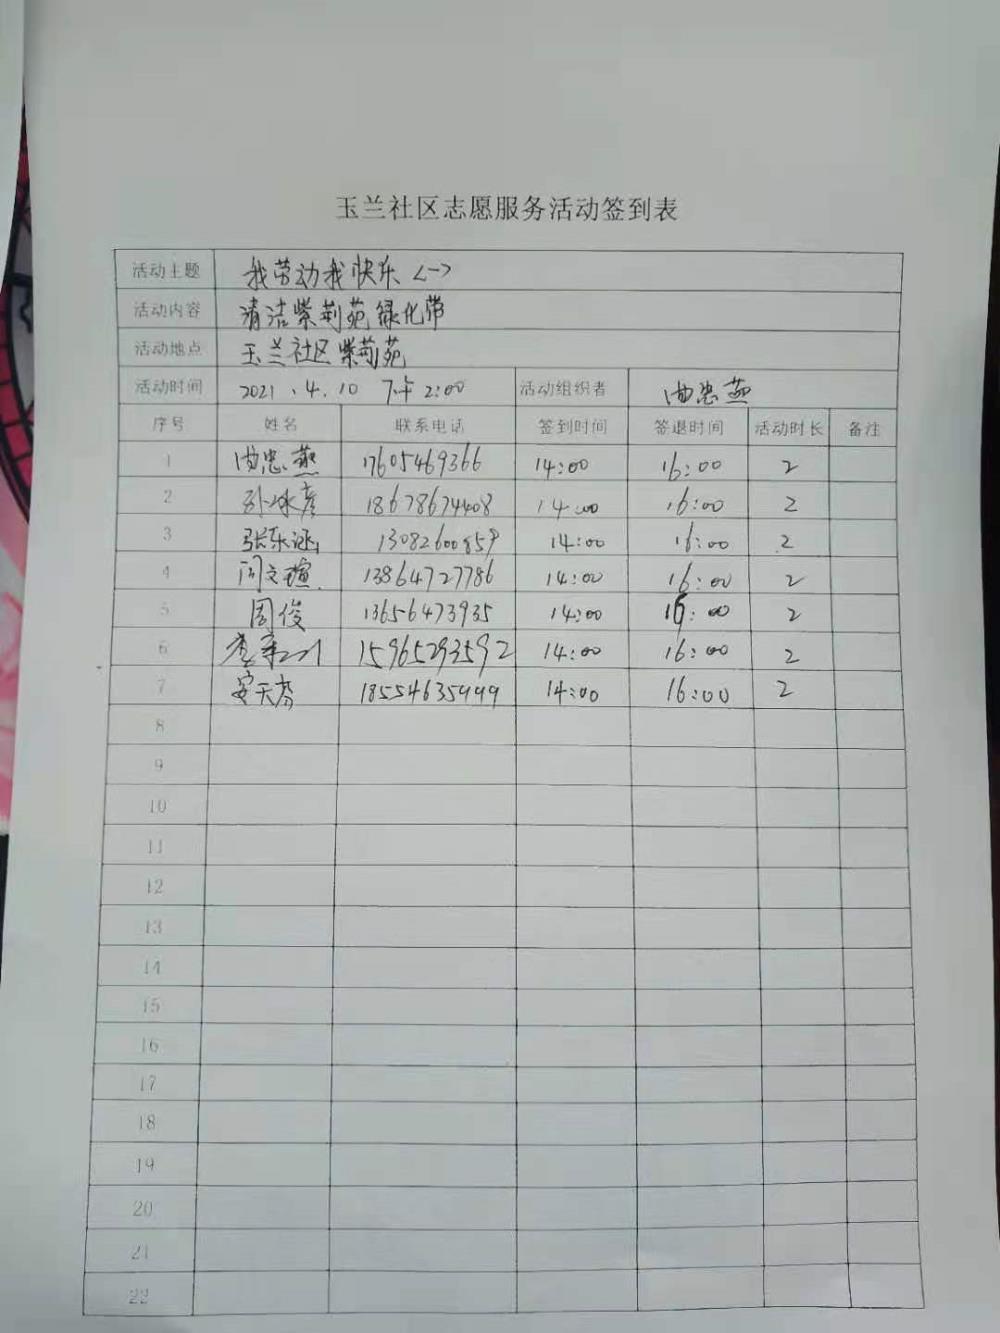 玉兰社区志愿服务活动签到表
活动主题 我劳动我快乐 <一>
活动内容 清洁紫荆苑绿化带
活动地点 玉兰社区紫荆苑
活动时间 2021.4.10 下午2:00 活动组织者 曲忠燕
序号 姓名 联系电话 签到时间 签退时间 活动时长 备注
1 曲忠燕 17605469366 14:00 16:00 2
2 孙冰彦 18678674408 14:00 16:00 2
3 张东涵 13082600859 14:00 16:00 2
4 闫文瑄 13864727786 14:00 16:00 2
5 周俊 13656473935 14:00 16:00 2
6 15965293592 14:00 16:00 2
7 安天 18554635999 14:00 16:00 2
8
9
10
11
12
13
14
15
16
17
18
19
20
21
22